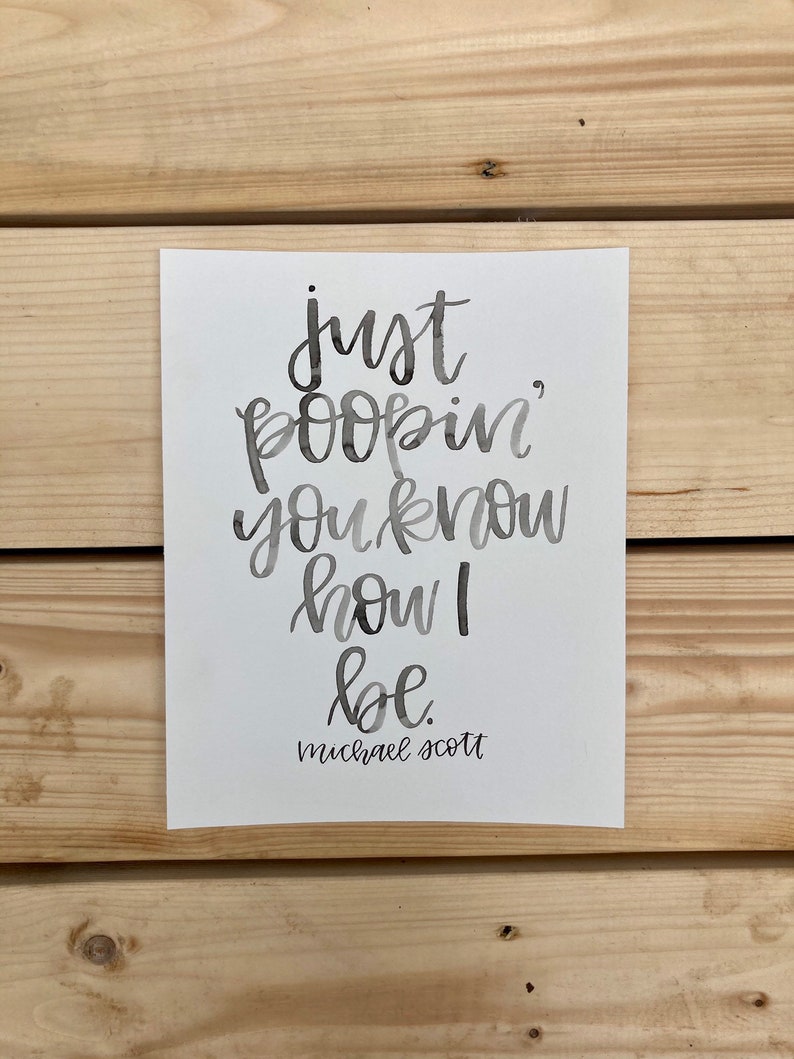 just
poopin'
you know
how I
be.
michael scott